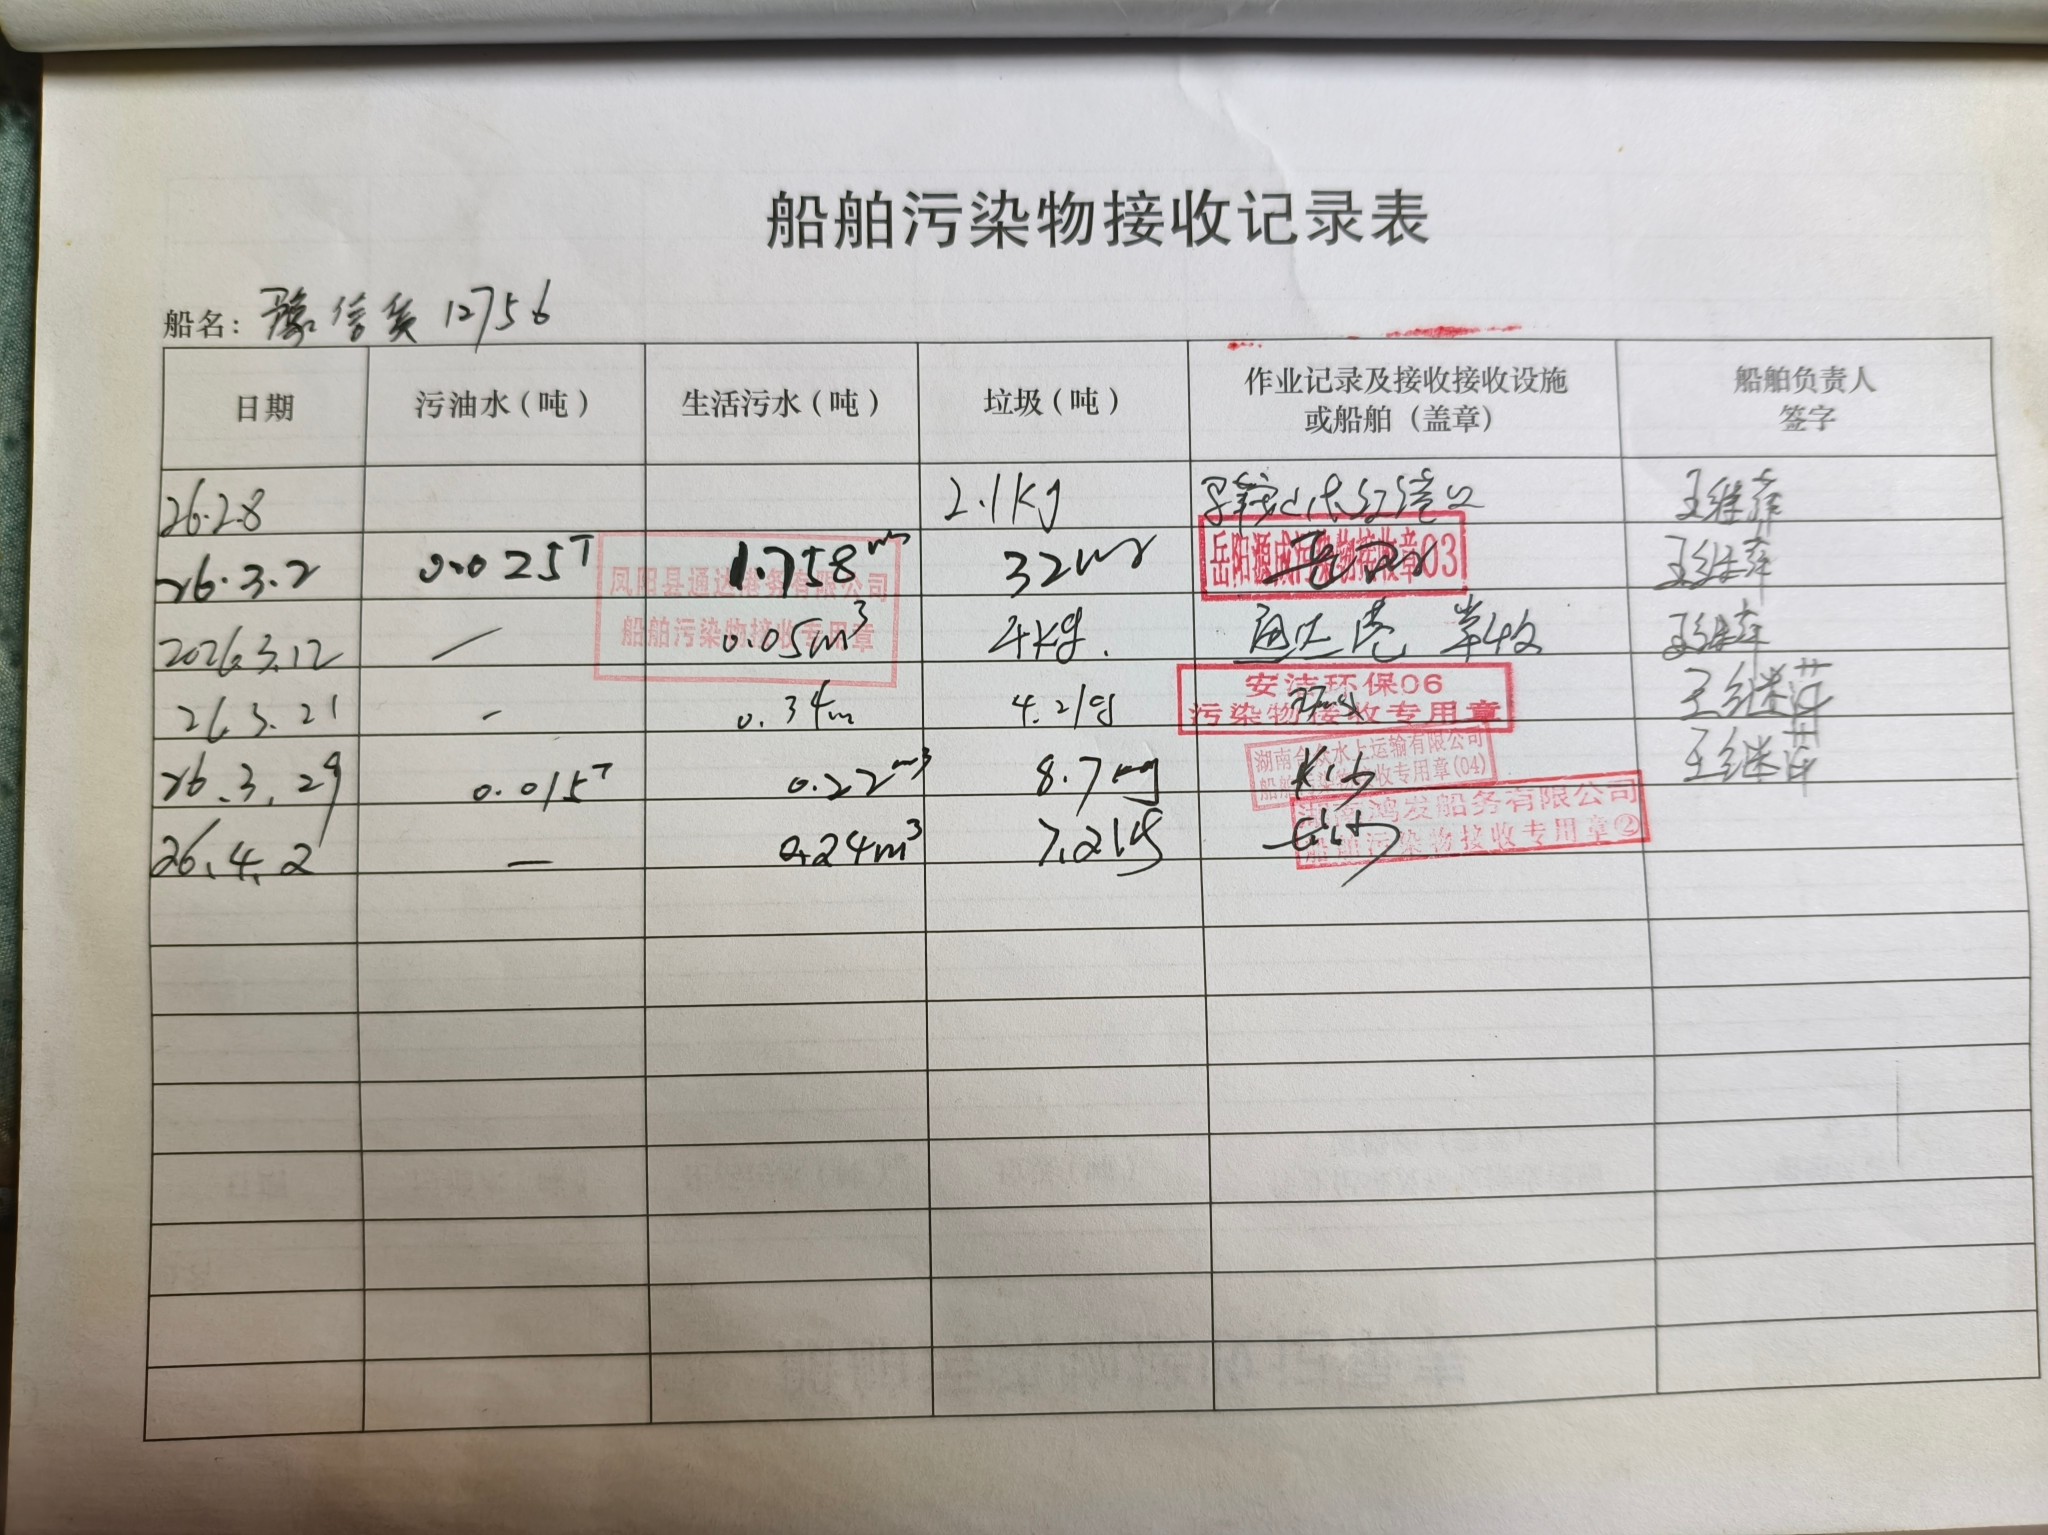 船舶污染物接收记录表
船名：豫信货12756
日期 污油水（吨） 生活污水（吨） 垃圾（吨） 作业记录及接收接收设施或船舶（盖章） 船舶负责人签字
26.2.8 2.1kg 王继萍
26.3.2 0.025T 1.758m³ 32 岳阳源成污染物接收章03 王继萍
凤阳县通达港务有限公司
船舶污染物接收专用章
2026.3.12 / 0.05m³ 4kg. 通达港 王继萍
26.3.21 - 0.34m 4.2kg 安洁环保06 王继萍
污染物接收专用章
26.3.29 0.015T 0.22m³ 8.7 长沙 王继萍
湖南合众水上运输有限公司
船舶污染物接收专用章(04)
26.4.2 — 0.24m³ 7.2kg 长沙
湖南鸿发船务有限公司
船舶污染物接收专用章②